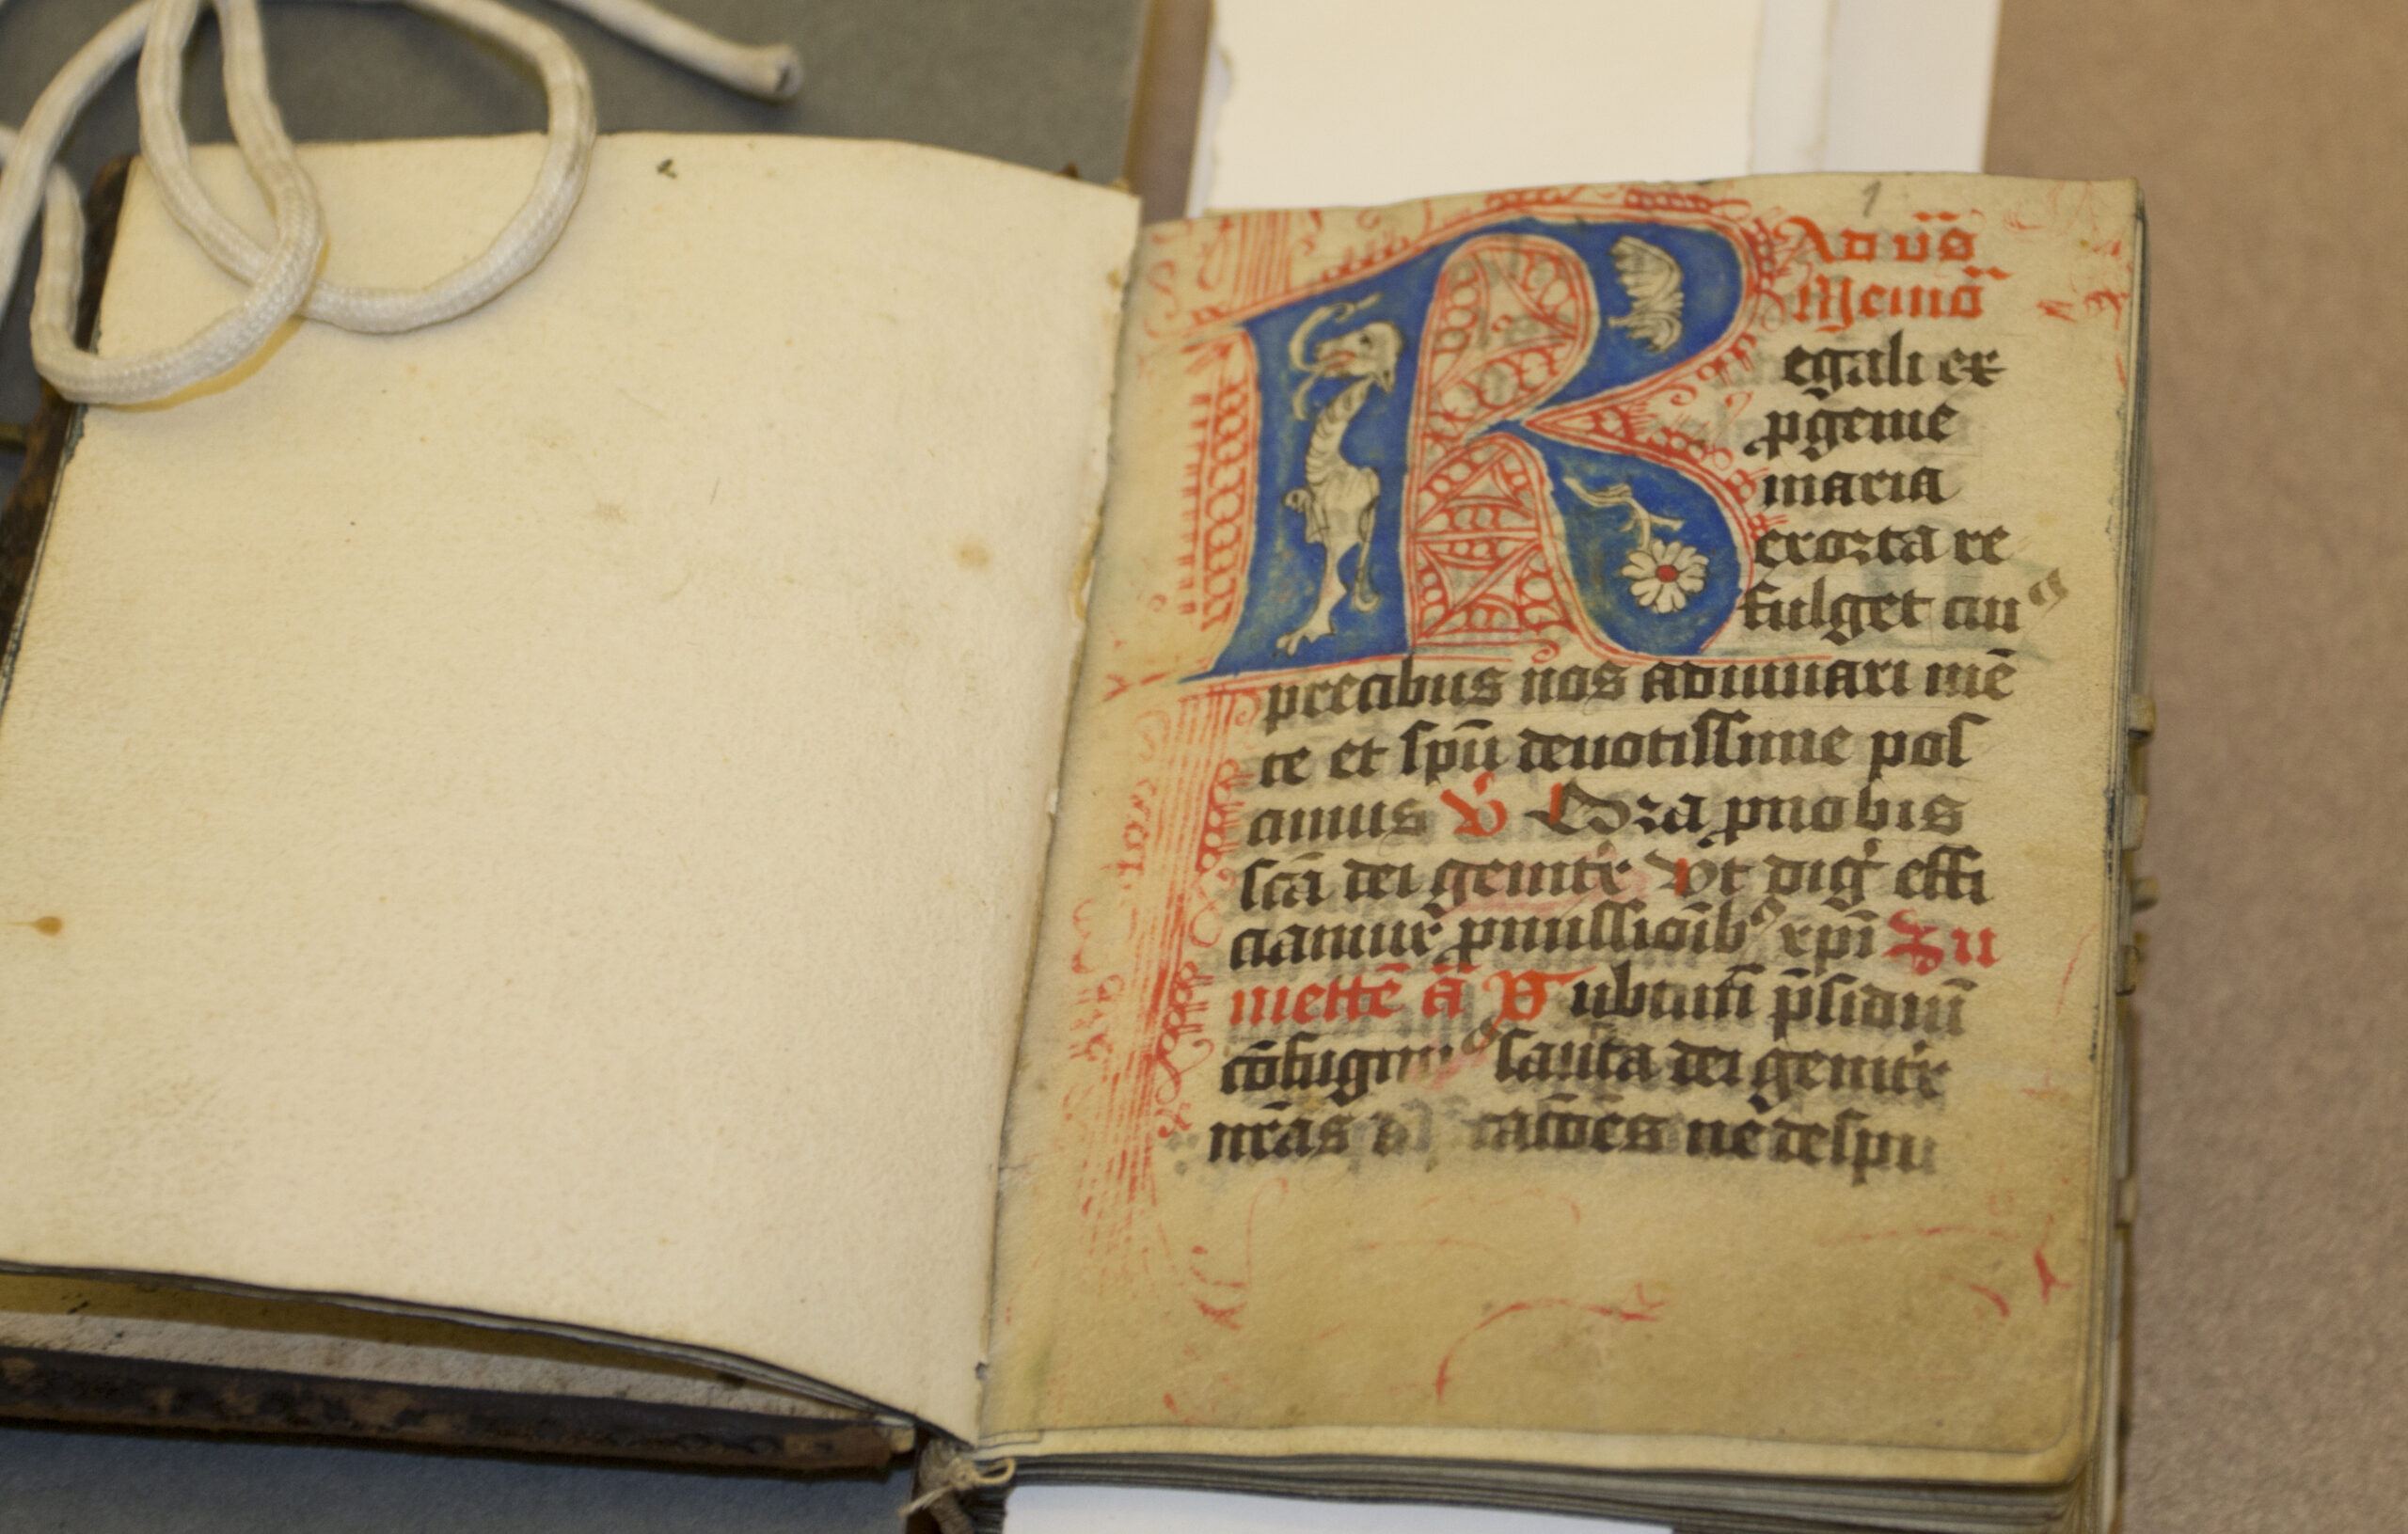 1
Ad vs̄
Memō
Regali ex
ꝓgenie
maria
exorta re
fulget cuiꝰ
precibus nos adiuuari mē
te et spū deuotissime pos
cimus ℣ Ora pnobis
scā dei genitͥx Vt digͥ effi
ciamur ꝓmissioībꝰ xpī Su
mettē ā Sub tuūm p̄sidiū
cōfugimꝰ sancta dei genitͥx
nr̄as catōēs ne despi